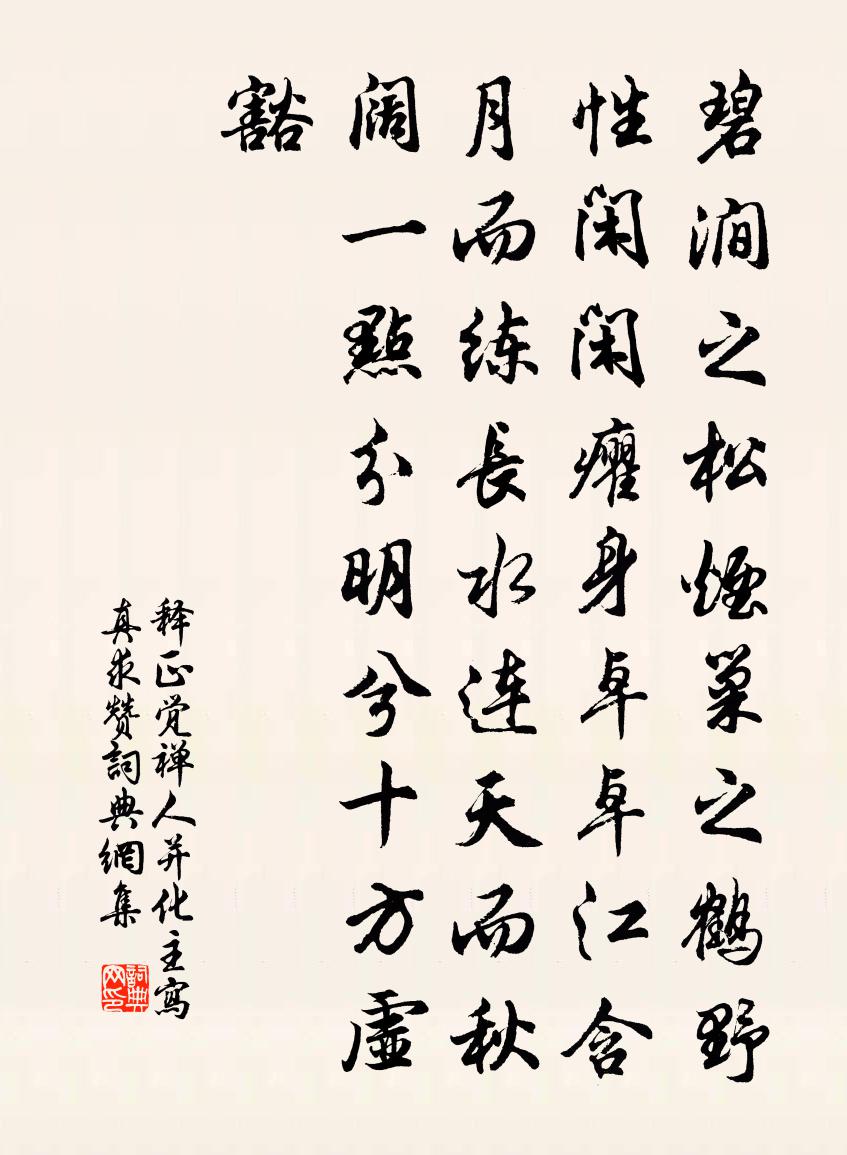 碧澗之松煙巢之鶴野
性閑閑癯身卓卓江含
月而练長水连天而秋
阔一點分明兮十方虛
豁
释正觉禅人并化主寫
真求赞詞典網集
詞典网印